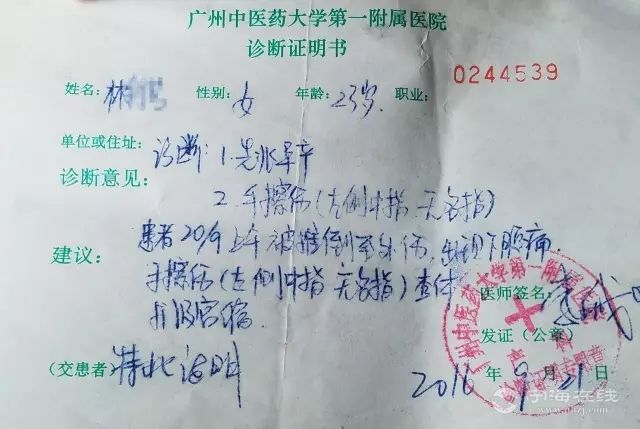 广州中医药大学第一附属医院
诊断证明书
0244539
姓名: 林 性别: 女 年龄: 23岁 职业:
单位或住址:
诊断: 1.先兆早产
诊断意见:
2.手擦伤(左侧中指、无名指)
建议: 患者20/9上午被推倒至外伤,出现下腹痛、
手擦伤(左侧中指、无名指)查体
扪及宫缩。
医师签名:
发证(公章)
(交患者) 特此证明
2016年9月21日
广州中医药大学第一附属医院
产科
诊断证明专用章